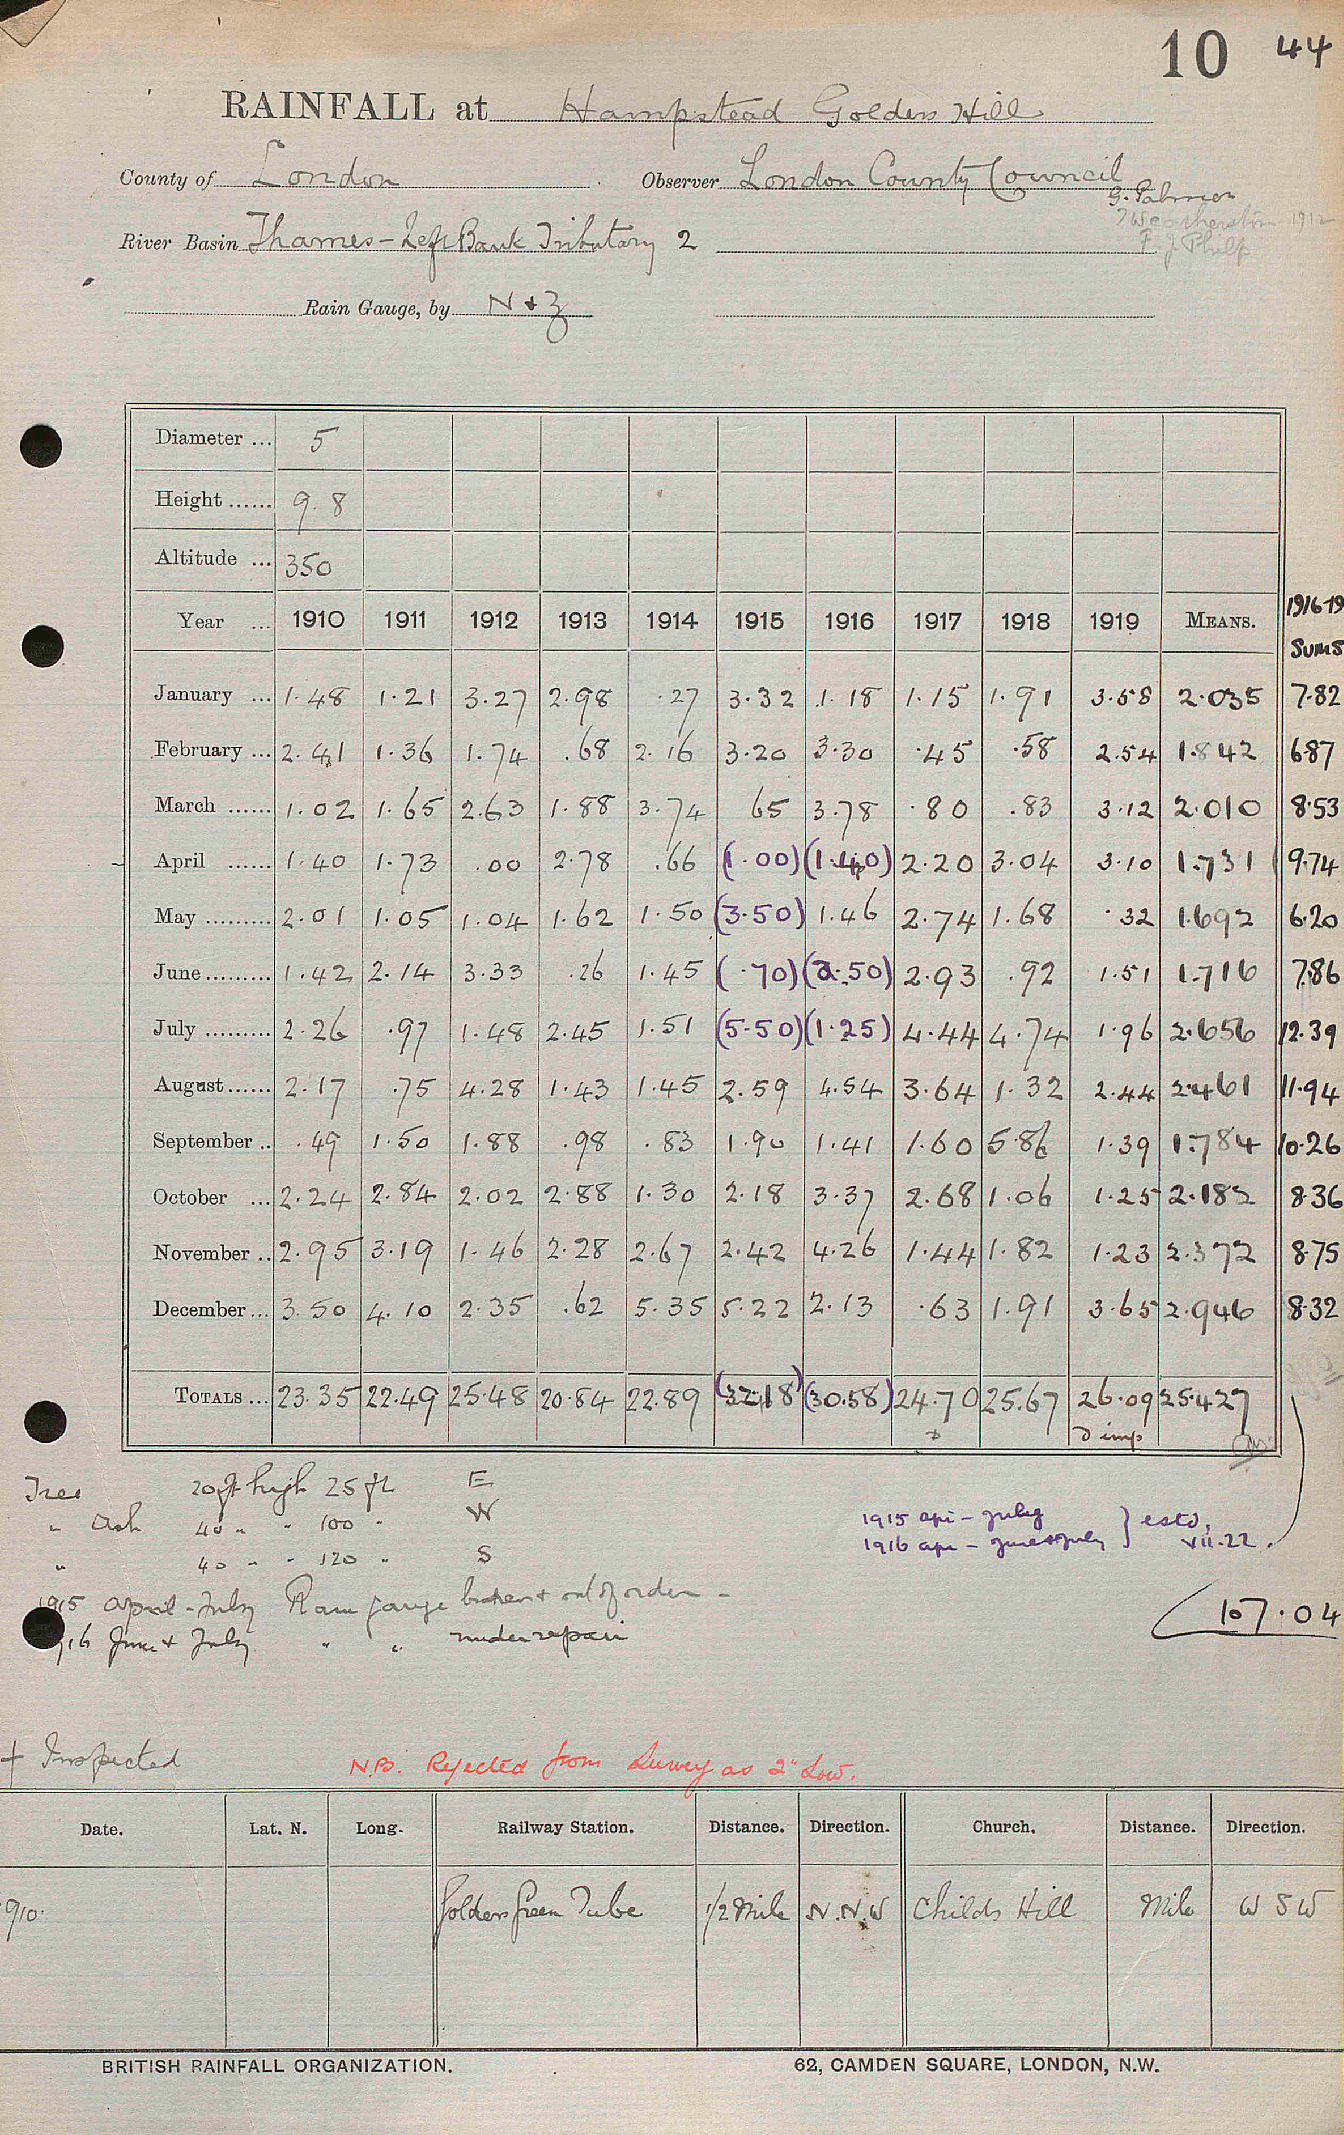 10 44
RAINFALL at Hampstead Golders Hill
County of London Observer London County Council
G. Palmer
River Basin Thames - Left Bank Tributary 2
1912
F. J. Philp
Rain Gauge, by N + Z
Diameter ... 5
Height ...... 9.8
Altitude ... 350
Year ... 1910 1911 1912 1913 1914 1915 1916 1917 1918 1919 MEANS. 1916-19 Sums
January ... 1.48 1.21 3.27 2.98 .27 3.32 1.18 1.15 1.91 3.58 2.035 7.82
February ... 2.41 1.36 1.74 .68 2.16 3.20 3.30 .45 .58 2.54 1.842 6.87
March ...... 1.02 1.65 2.63 1.88 3.74 65 3.78 .80 .83 3.12 2.010 8.53
April ...... 1.40 1.73 .00 2.78 .66 (1.00) (1.40) 2.20 3.04 3.10 1.731 9.74
May ......... 2.01 1.05 1.04 1.62 1.50 (3.50) 1.46 2.74 1.68 .32 1.692 6.20
June......... 1.42 2.14 3.33 .26 1.45 (.70) (2.50) 2.93 .92 1.51 1.716 7.86
July ......... 2.26 .97 1.48 2.45 1.51 (5.50) (1.25) 4.44 4.74 1.96 2.656 12.39
August...... 2.17 .75 4.28 1.43 1.45 2.59 4.54 3.64 1.32 2.44 2.461 11.94
September .. .49 1.50 1.88 .98 .83 1.90 1.41 1.60 5.86 1.39 1.784 10.26
October ... 2.24 2.84 2.02 2.88 1.30 2.18 3.37 2.68 1.06 1.25 2.182 8.36
November .. 2.95 3.19 1.46 2.28 2.67 2.42 4.26 1.44 1.82 1.23 2.372 8.75
December... 3.50 4.10 2.35 .62 5.35 5.22 2.13 .63 1.91 3.65 2.946 8.32
TOTALS ... 23.35 22.49 25.48 20.84 22.89 (32.18) (30.58) 24.70 25.67 26.09 25.427
D imp
Tree 20 ft high 25 ft E
" Ash 40 " " 100 " W
" 40 " " 120 " S
1915 api - july } estd,
1916 api - june + july VII.22.
1915 April - July Rain gauge broken + out of order -
16 June + July " " under repair
107.04
+ Inspected
N.B. Rejected from Survey as 2" Low.
Date. Lat. N. Long. Railway Station. Distance. Direction. Church. Distance. Direction.
910. Golders Green Tube 1/2 Mile N.N.W Childs Hill Mile W S W
BRITISH RAINFALL ORGANIZATION. 62, CAMDEN SQUARE, LONDON, N.W.